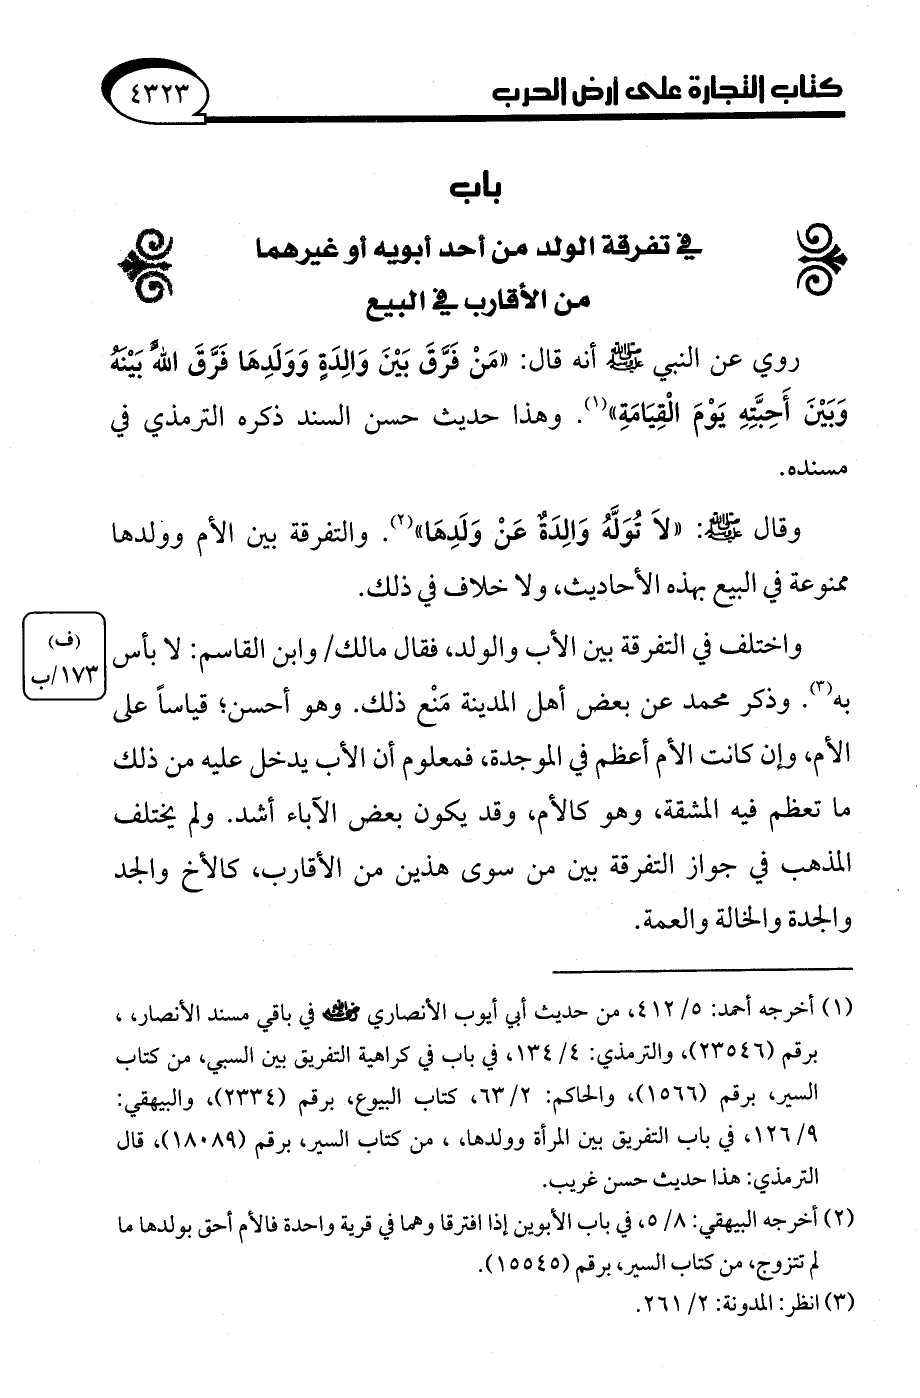 كتاب التجارة على أرض الحرب
٤٣٢٣
باب
في تفرقة الولد من أحد أبويه أو غيرهما
من الأقارب في البيع
روي عن النبي ﷺ أنه قال: «مَنْ فَرَّقَ بَيْنَ وَالِدَةٍ وَوَلَدِهَا فَرَّقَ اللهُ بَيْنَهُ
وَبَيْنَ أَحِبَّتِهِ يَوْمَ الْقِيَامَةِ»(١). وهذا حديث حسن السند ذكره الترمذي في
مسنده.
وقال ﷺ: «لاَ تُوَلَّهُ وَالِدَةٌ عَنْ وَلَدِهَا»(٢). والتفرقة بين الأم وولدها
ممنوعة في البيع بهذه الأحاديث، ولا خلاف في ذلك.
واختلف في التفرقة بين الأب والولد، فقال مالك/ وابن القاسم: لا بأس
(ف)
١٧٣/ب
به(٣). وذكر محمد عن بعض أهل المدينة مَنْع ذلك. وهو أحسن؛ قياساً على
الأم، وإن كانت الأم أعظم في الموجدة، فمعلوم أن الأب يدخل عليه من ذلك
ما تعظم فيه المشقة، وهو كالأم، وقد يكون بعض الآباء أشد. ولم يختلف
المذهب في جواز التفرقة بين من سوى هذين من الأقارب، كالأخ والجد
والجدة والخالة والعمة.
(١) أخرجه أحمد: ٥/ ٤١٢، من حديث أبي أيوب الأنصاري رضي الله عنه في باقي مسند الأنصار، ،
برقم (٢٣٥٤٦)، والترمذي: ٤/ ١٣٤، في باب في كراهية التفريق بين السبي، من كتاب
السير، برقم (١٥٦٦)، والحاكم: ٢/ ٦٣، كتاب البيوع، برقم (٢٣٣٤)، والبيهقي:
٩/ ١٢٦، في باب التفريق بين المرأة وولدها، ، من كتاب السير، برقم (١٨٠٨٩)، قال
الترمذي: هذا حديث حسن غريب.
(٢) أخرجه البيهقي: ٨/ ٥، في باب الأبوين إذا افترقا وهما في قرية واحدة فالأم أحق بولدها ما
لم تتزوج، من كتاب السير، برقم (١٥٥٤٥).
(٣) انظر: المدونة: ٢/ ٢٦١.